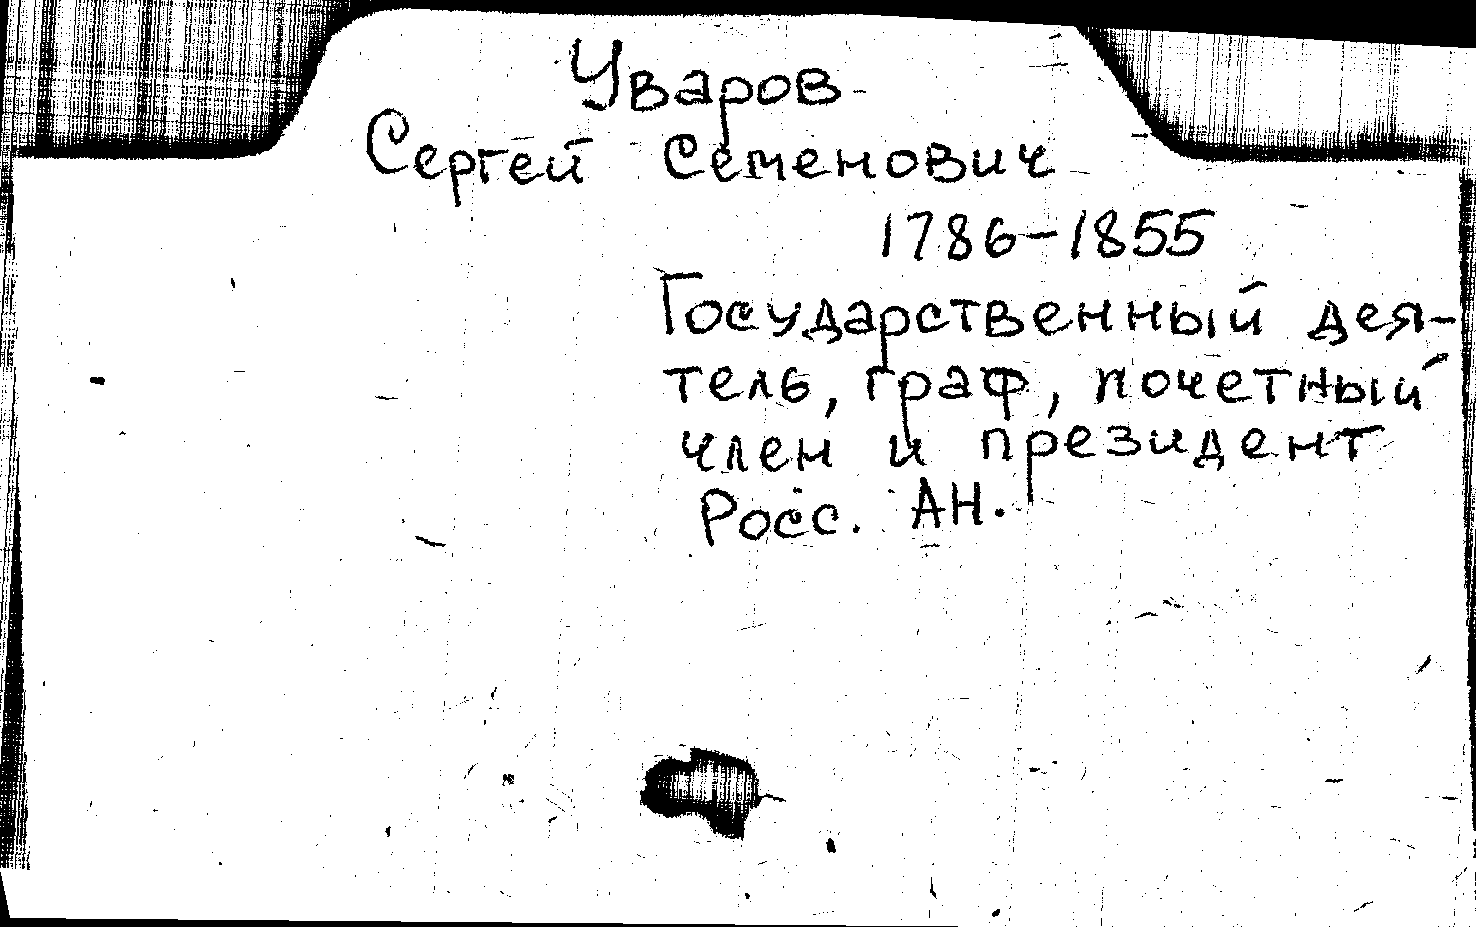 Уваров
Сергей Семенович
1786-1855
Государственный дея-
тель, граф, почетный
член и президент
Росс. АН.